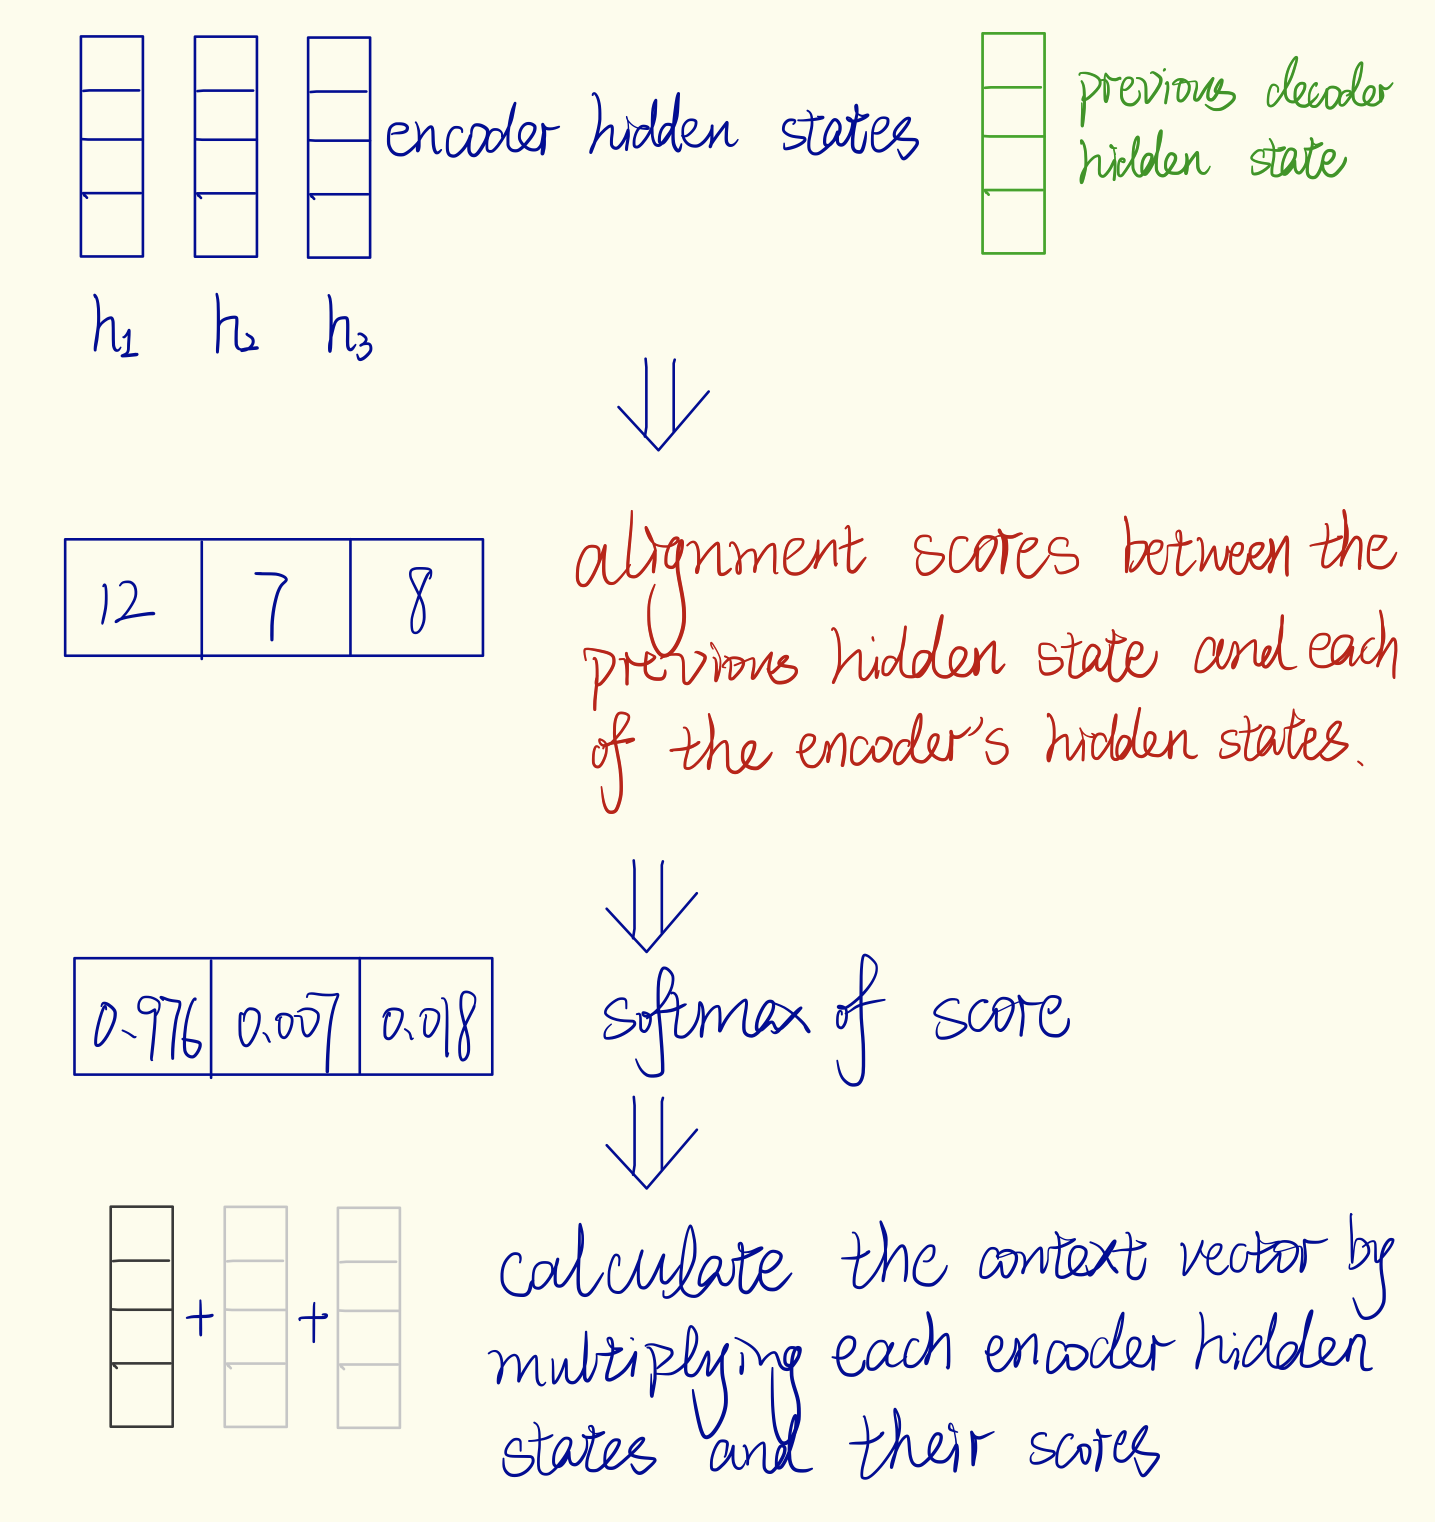 encoder hidden states
previous decoder
hidden state
h1 h2 h3
12 7 8
alignment scores between the
previous hidden state and each
of the encoder's hidden states.
0.976 0.007 0.018
softmax of score
+ +
calculate the context vector by
multiplying each encoder hidden
states and their scores